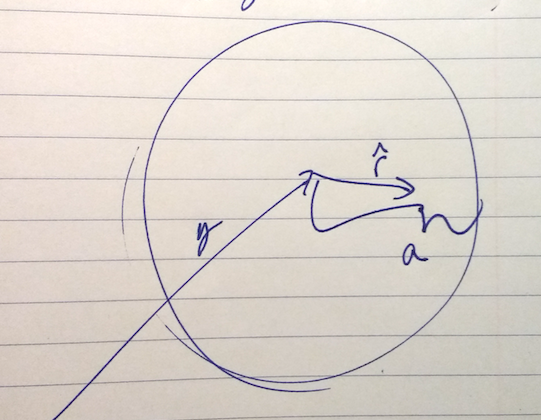 r̂
y
a